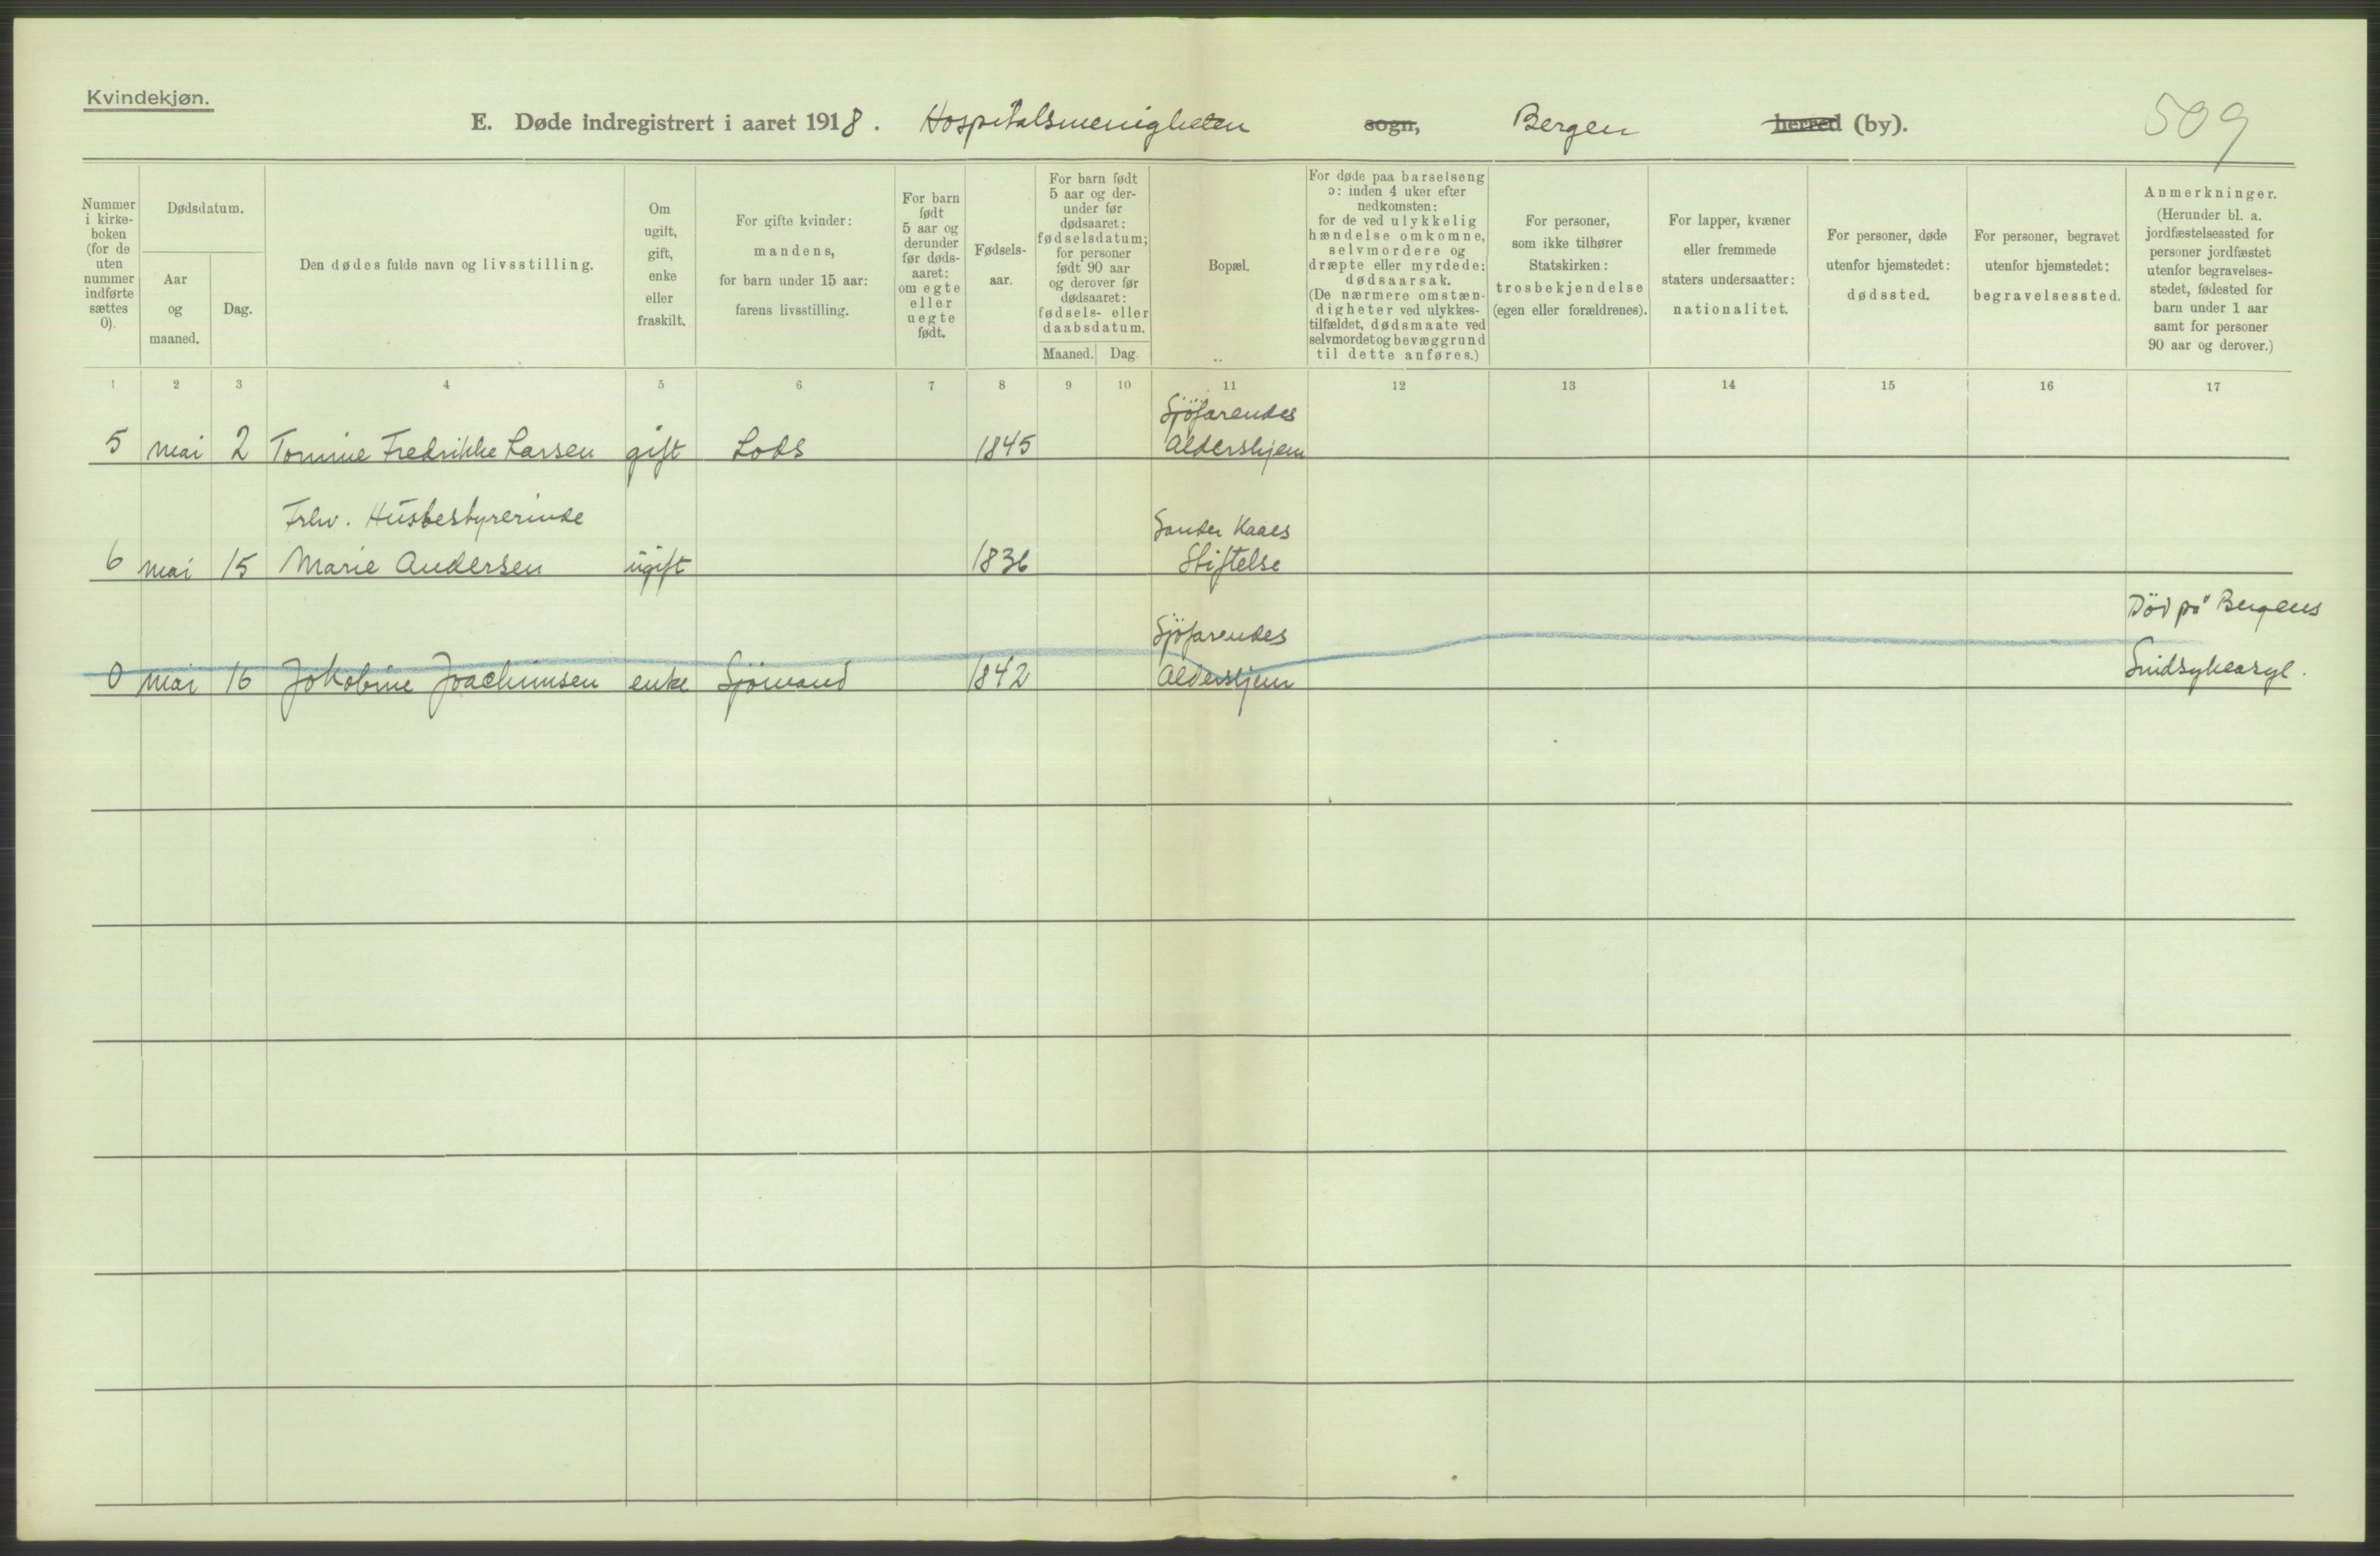 Kvindekjøn.
E. Døde indregistrert i aaret 1918. Hospitalsmenigheten sogn, Bergen herred (by). 509
Nummer i kirke- boken (for de uten nummer indførte sættes 0).
Dødsdatum.
Aar og maaned.
Dag.
Den dødes fulde navn og livsstilling.
Om ugift, gift, enke eller fraskilt.
For gifte kvinder: mandens, for barn under 15 aar: farens livsstilling.
For barn født 5 aar og derunder før døds- aaret: om egte eller uegte født.
Fødsels- aar.
For barn født 5 aar og der- under før dødsaaret: fødselsdatum; for personer født 90 aar og derover før dødsaaret: fødsels- eller daabsdatum.
Maaned. Dag.
Bopæl.
For døde paa barselseng ɔ: inden 4 uker efter nedkomsten: for de ved ulykkelig hændelse omkomne, selvmordere og dræpte eller myrdede: dødsaarsak. (De nærmere omstæn- digheter ved ulykkes- tilfældet, dødsmaate ved selvmordet og bevæggrund til dette anføres.)
For personer, som ikke tilhører Statskirken: trosbekjendelse (egen eller forældrenes).
For lapper, kvæner eller fremmede staters undersaatter: nationalitet.
For personer, døde utenfor hjemstedet: dødssted.
For personer, begravet utenfor hjemstedet: begravelsessted.
Anmerkninger. (Herunder bl. a. jordfæstelsessted for personer jordfæstet utenfor begravelses- stedet, fødested for barn under 1 aar samt for personer 90 aar og derover.)
1 2 3 4 5 6 7 8 9 10 11 12 13 14 15 16 17
Sjöfarendes
5 mai 2 Tomine Fredrikke Larsen gift Lods 1845 Aldershjem
Frhv. Husbestyrerinde Sander Kaaes
6 mai 15 Marie Andersen ugift 1836 Stiftelse
Sjöfarendes Död på Bergens
0 mai 16 Jakobine Joachimsen enke Sjömand 1842 Aldershjem Sindsykeasyl.